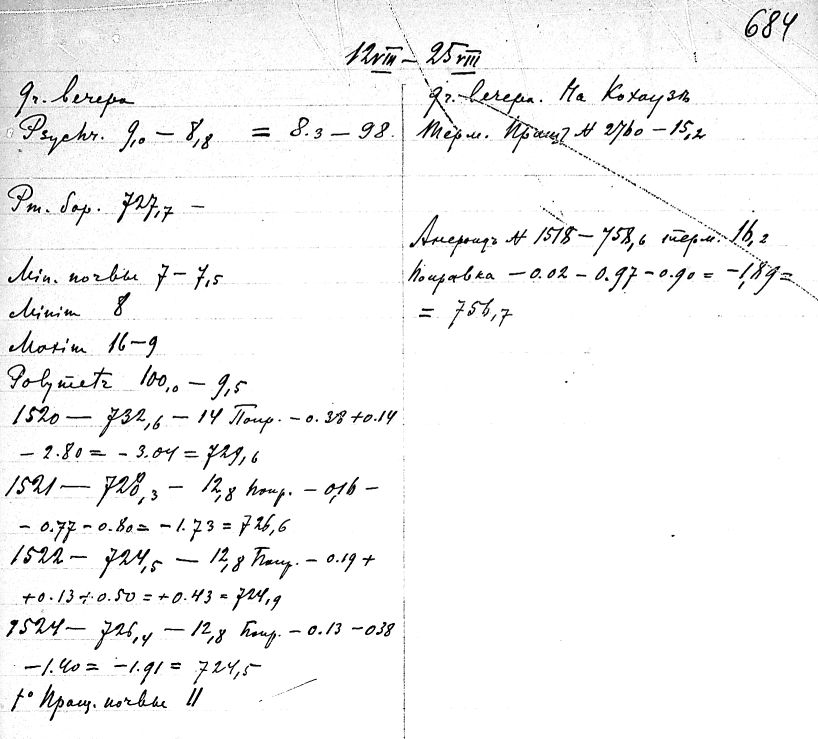 684
12 VIII – 25 VIII
9 ч. вечера
Psychr. 9,0 – 8,8 = 8.3 – 98.
Рт. бар. 727,7 –
Min. почвы 7 – 7,5
Minim 8
Maxim 16 – 9
Polymetr 100,0 – 9,5
1520 – 732,6 – 14 Попр. – 0.38 + 0.14
– 2.80 = – 3.04 = 729,6
1521 – 728,3 – 12,8 Попр. – 0,16 –
– 0.77 – 0.80 = – 1.73 = 726,6
1522 – 724,5 – 12,8 Попр. – 0.19 +
+ 0.13 + 0.50 = + 0.43 = 724,9
1524 – 726,4 – 12,8 Попр. – 0.13 – 038
– 1.40 = – 1.91 = 724,5
t° Пращ. почвы 11
9 ч. вечера. На Кохаузѣ
Терм. Пращъ № 2760 – 15,2
Анероидъ № 1518 – 758,6 терм. 16,2
Поправка – 0.02 – 0.97 – 0.90 = – 1,89 =
= 756,7